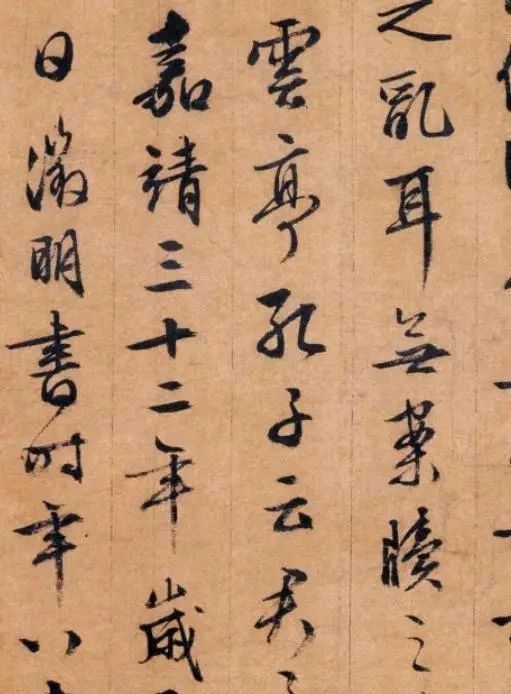 之亂耳無案牘之
雲亭孔子云何
嘉靖三十二年歲
日徵明書時年八